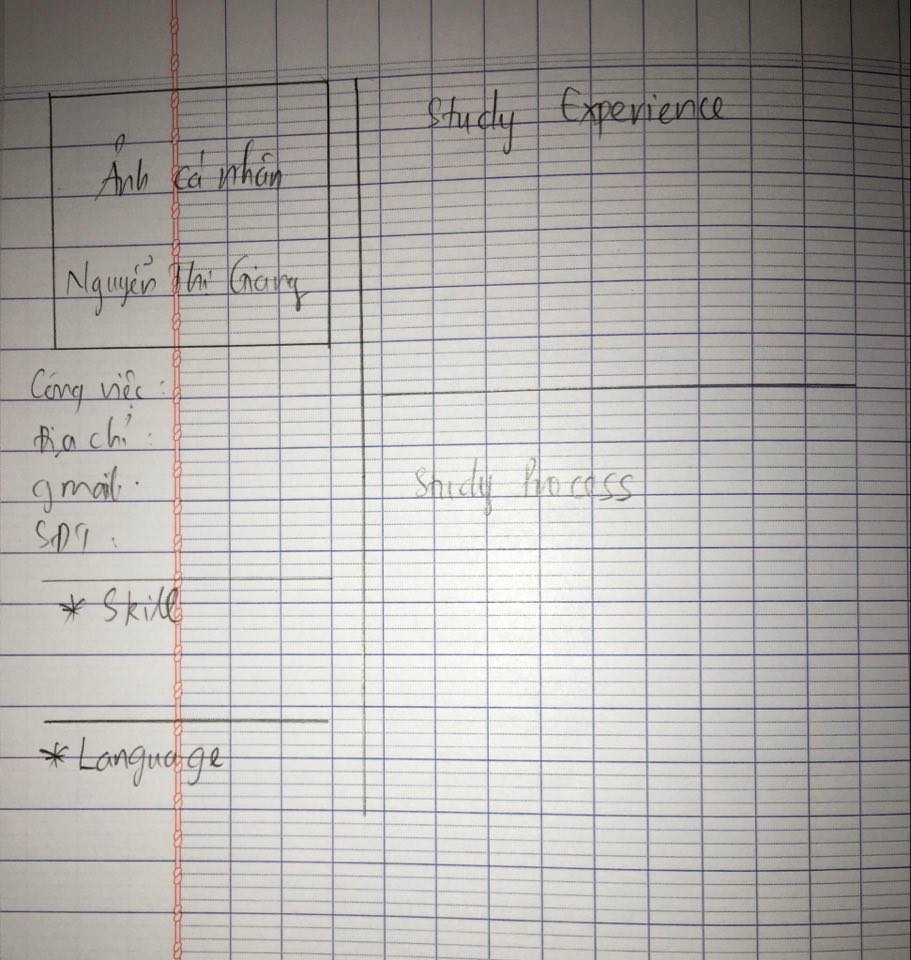 Ảnh cá nhân
Nguyển Thị Giang
Công việc :
Địa chỉ :
gmail :
SĐT :
* Skill
* Language
Study Experience
Study Process